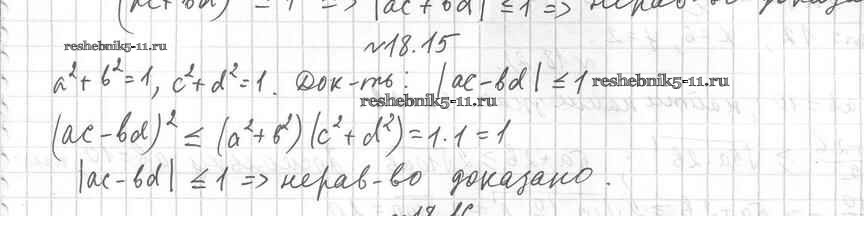 (ac+bd)² ≤ 1 => |ac+bd| ≤ 1 => нерав-во доказа
№18.15
reshebnik5-11.ru
a²+b²=1, c²+d²=1. Док-ть: |ac-bd| ≤ 1 reshebnik5-11.ru
reshebnik5-11.ru
(ac-bd)² ≤ (a²+b²)(c²+d²)=1·1=1
|ac-bd| ≤ 1 => нерав-во доказано.